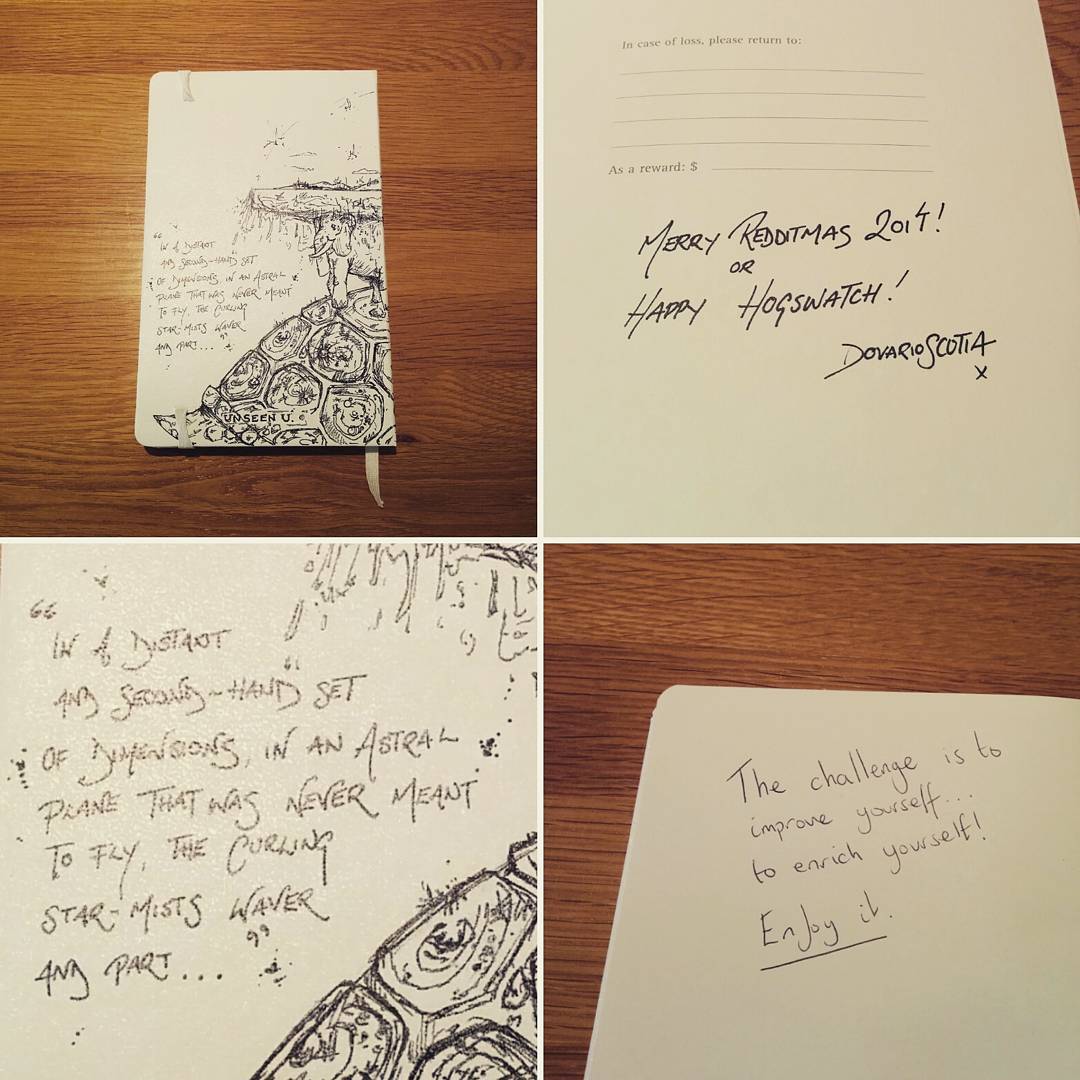 “
IN A DISTANT
AND SECOND-HAND SET
OF DIMENSIONS, IN AN ASTRAL
PLANE THAT WAS NEVER MEANT
TO FLY, THE CURLING
STAR-MISTS WAVER
AND PART...”
UNSEEN U.
In case of loss, please return to:
As a reward: $
MERRY REDDITMAS 2014!
OR
HAPPY HOGSWATCH!
DOVARIOSCOTIA
x
“
IN A DISTANT
AND SECOND-HAND SET
OF DIMENSIONS, IN AN ASTRAL
PLANE THAT WAS NEVER MEANT
TO FLY, THE CURLING
STAR-MISTS WAVER
AND PART...”
The challenge is to
improve yourself...
to enrich yourself!
Enjoy it.